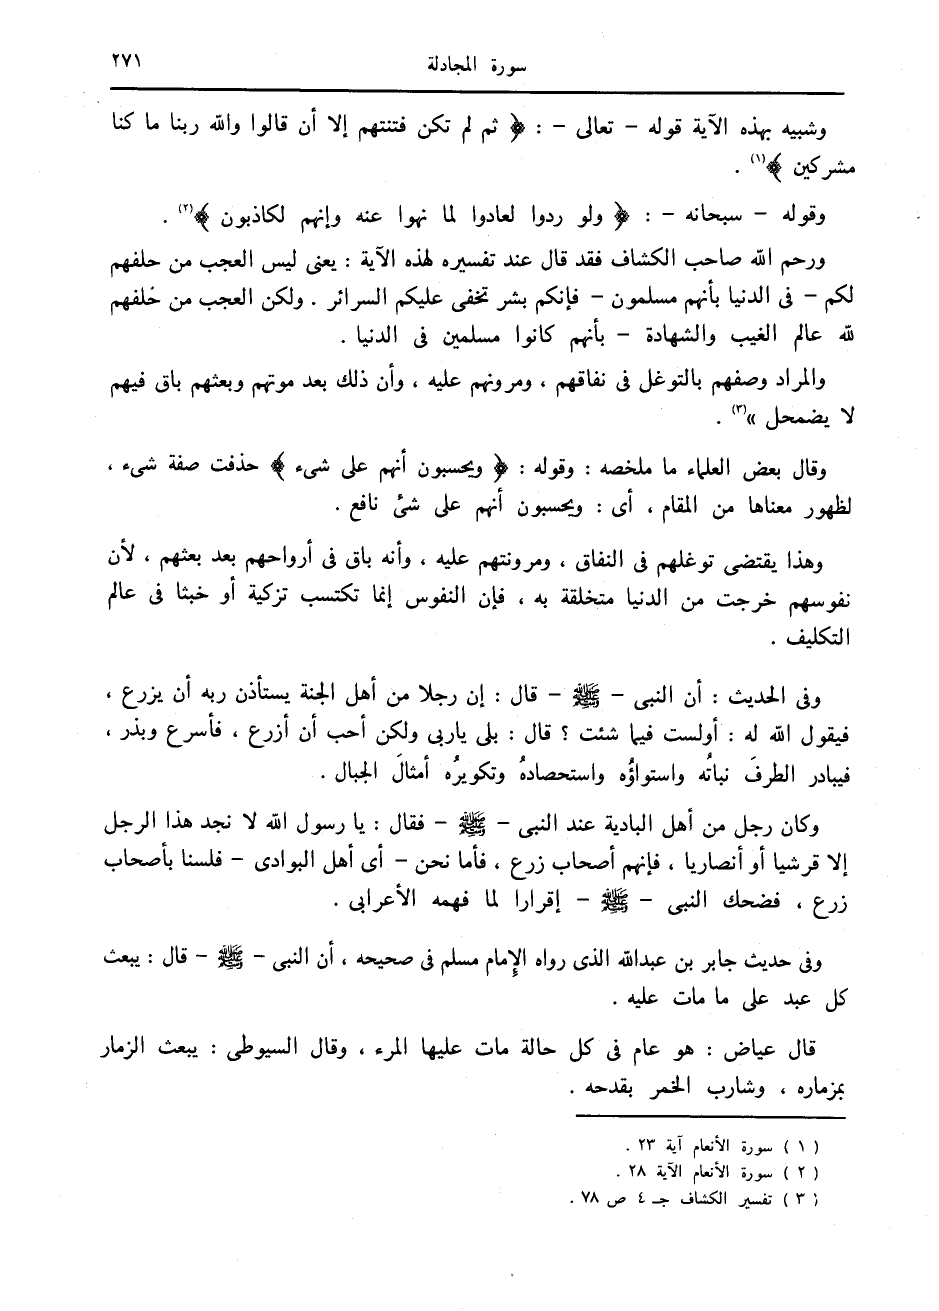 سورة المجادلة ٢٧١
وشبيه بهذه الآية قوله – تعالى – : ﴿ ثم لم تكن فتنتهم إلا أن قالوا والله ربنا ما كنا
مشركين ﴾(١) .
وقوله – سبحانه – : ﴿ ولو ردوا لعادوا لما نهوا عنه وإنهم لكاذبون ﴾(٢) .
ورحم الله صاحب الكشاف فقد قال عند تفسيره لهذه الآية : يعنى ليس العجب من حلفهم
لكم – فى الدنيا بأنهم مسلمون – فإنكم بشر تخفى عليكم السرائر . ولكن العجب من حُلفهم
لله عالم الغيب والشهادة – بأنهم كانوا مسلمين فى الدنيا .
والمراد وصفهم بالتوغل فى نفاقهم ، ومرونهم عليه ، وأن ذلك بعد موتهم وبعثهم باق فيهم
لا يضمحل »(٣) .
وقال بعض العلماء ما ملخصه : وقوله : ﴿ ويحسبون أنهم على شىء ﴾ حذفت صفة شىء ،
لظهور معناها من المقام ، أى : ويحسبون أنهم على شئ نافع .
وهذا يقتضى توغلهم فى النفاق ، ومرونتهم عليه ، وأنه باق فى أرواحهم بعد بعثهم ، لأن
نفوسهم خرجت من الدنيا متخلقة به ، فإن النفوس إنما تكتسب تزكية أو خبثا فى عالم
التكليف .
وفى الحديث : أن النبى – ﷺ – قال : إن رجلا من أهل الجنة يستأذن ربه أن يزرع ،
فيقول الله له : أولست فيما شئت ؟ قال : بلى ياربى ولكن أحب أن أزرع ، فأسرع وبذر ،
فيبادر الطرفَ نباتُه واستواؤُه واستحصادهُ وتكويرُه أمثالَ الجبال .
وكان رجل من أهل البادية عند النبى – ﷺ – فقال : يا رسول الله لا نجد هذا الرجل
إلا قرشيا أو أنصاريا ، فإنهم أصحاب زرع ، فأما نحن – أى أهل البوادى – فلسنا بأصحاب
زرع ، فضحك النبى – ﷺ – إقرارا لما فهمه الأعرابى .
وفى حديث جابر بن عبدالله الذى رواه الإمام مسلم فى صحيحه ، أن النبى – ﷺ – قال : يبعث
كل عبد على ما مات عليه .
قال عياض : هو عام فى كل حالة مات عليها المرء ، وقال السيوطى : يبعث الزمار
بمزماره ، وشارب الخمر بقدحه .
( ١ ) سورة الأنعام آية ٢٣ .
( ٢ ) سورة الأنعام الآية ٢٨ .
( ٣ ) تفسير الكشاف جـ ٤ ص ٧٨ .